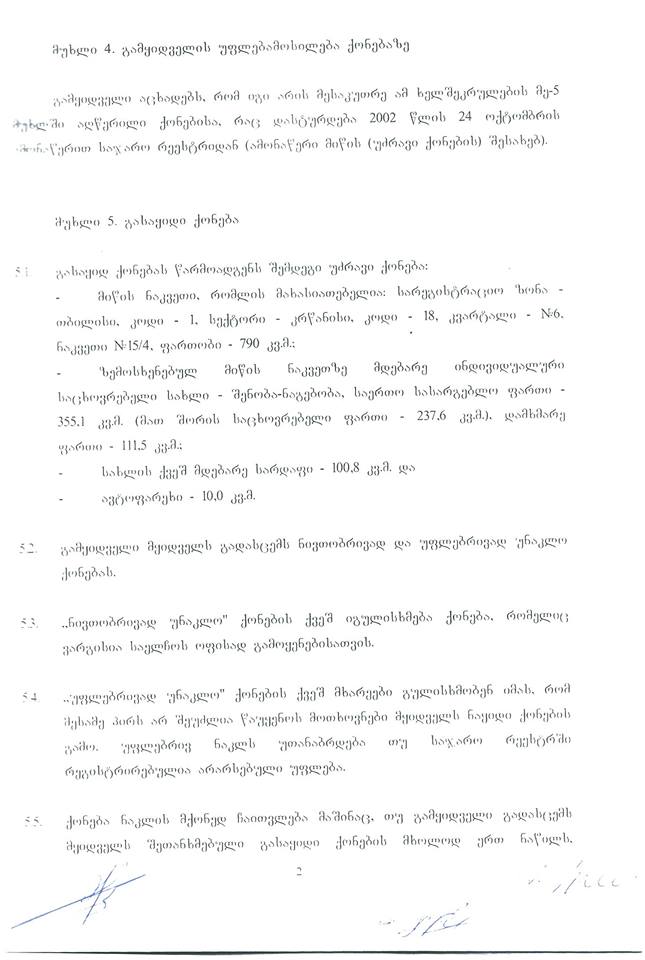 მუხლი 4. გამყიდველის უფლებამოსილება ქონებაზე
გამყიდველი აცხადებს, რომ იგი არის მესაკუთრე ამ ხელშეკრულების მე-5
მუხლში აღწერილი ქონებისა, რაც დასტურდება 2002 წლის 24 ოქტომბრის
ამონაწერით საჯარო რეესტრიდან (ამონაწერი მიწის (უძრავი ქონების) შესახებ).
მუხლი 5. გასაყიდი ქონება
5.1. გასაყიდ ქონებას წარმოადგენს შემდეგი უძრავი ქონება:
- მიწის ნაკვეთი, რომლის მახასიათებელია: სარეგისტრაციო ზონა -
თბილისი, კოდი - 1, სექტორი - კრწანისი, კოდი - 18, კვარტალი - №6,
ნაკვეთი №15/4, ფართობი - 790 კვ.მ.;
- ზემოსხენებულ მიწის ნაკვეთზე მდებარე ინდივიდუალური
საცხოვრებელი სახლი - შენობა-ნაგებობა, საერთო სასარგებლო ფართი -
355,1 კვ.მ. (მათ შორის საცხოვრებელი ფართი - 237,6 კვ.მ.), დამხმარე
ფართი - 111,5 კვ.მ.;
- სახლის ქვეშ მდებარე სარდაფი - 100,8 კვ.მ. და
- ავტოფარეხი - 10,0 კვ.მ.
5.2. გამყიდველი მყიდველს გადასცემს ნივთობრივად და უფლებრივად უნაკლო
ქონებას.
5.3. „ნივთობრივად უნაკლო" ქონების ქვეშ იგულისხმება ქონება, რომელიც
ვარგისია საელჩოს ოფისად გამოყენებისათვის.
5.4. „უფლებრივად უნაკლო" ქონების ქვეშ მხარეები გულისხმობენ იმას, რომ
მესამე პირს არ შეუძლია წაუყენოს მოთხოვნები მყიდველს ნაყიდი ქონების
გამო. უფლებრივ ნაკლს უთანაბრდება თუ საჯარო რეესტრში
რეგისტრირებულია არარსებული უფლება.
5.5. ქონება ნაკლის მქონედ ჩაითვლება მაშინაც, თუ გამყიდველი გადასცემს
მყიდველს შეთანხმებული გასაყიდი ქონების მხოლოდ ერთ ნაწილს,
2